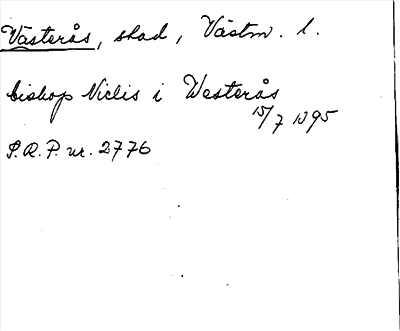 Västerås, stad, Västm. l.
biskop Niclis i Westerås
15/7 1395
S.R.P. nr. 2776